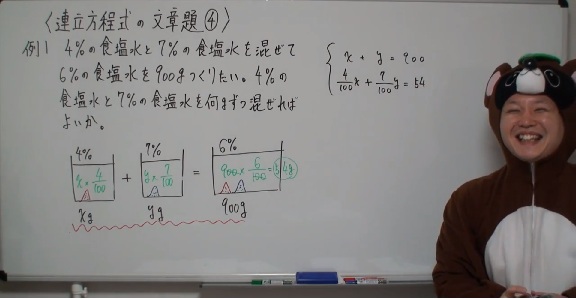 〈連立方程式の文章題④〉
例1 4%の食塩水と7%の食塩水を混ぜて
6%の食塩水を900gつくりたい。4%の
食塩水と7%の食塩水を何gずつ混ぜれば
よいか。
x + y = 900
4/100 x + 7/100 y = 54
4% 7% 6%
x × 4/100 + y × 7/100 = 900 × 6/100 = 54g
xg yg 900g